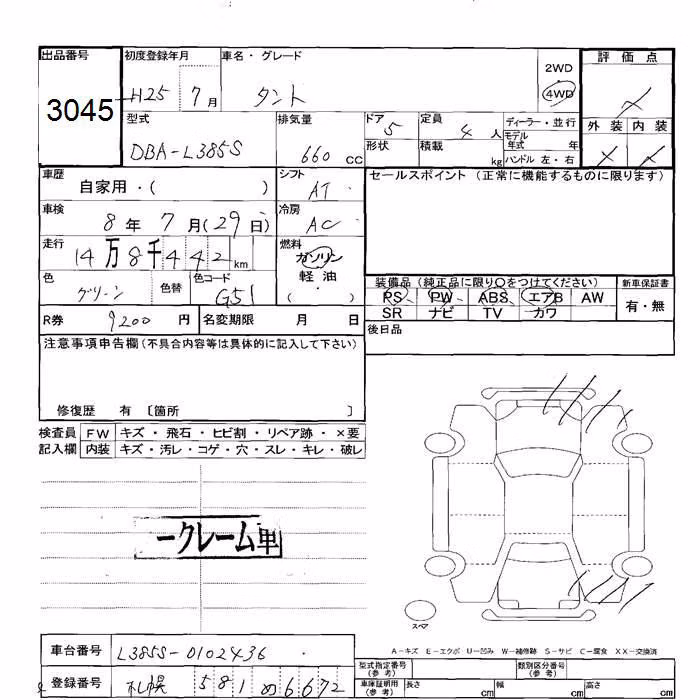 出品番号 初度登録年月 車名・グレード 評価点
3045 H25 7月 タント 2WD 4WD
外装 内装
型式 排気量 ドア 定員 ディーラー・並行
DBA-L385S 660 cc 5 4 人 モデル年式 年
形状 積載 kg ハンドル 左・右
車歴 シフト セールスポイント (正常に機能するものに限ります)
自家用・( ) AT
車検 冷房
8年 7月(29日) AC
走行 燃料
14万8千442km ガソリン
軽油
( ・ )
色 色替 色コード 装備品 (純正品に限り○をつけてください) 新車保証書
グリーン G51 PS PW ABS エアB AW 有・無
SR ナビ TV カワ
R券 9200 円 名変期限 月 日
後日品
注意事項申告欄 (不具合内容等は具体的に記入して下さい)
修復歴 有 〔箇所 〕
検査員 FW キズ・飛石・ヒビ割・リペア跡・×要
記入欄 内装 キズ・汚レ・コゲ・穴・スレ・キレ・破レ
ークレーム車
スペア
A-キズ E-エクボ U-凹み W-補修跡 S-サビ C-腐食 XX-交換済
車台番号 L385S-0102436
型式指定番号(参考) 類別区分番号(参考)
登録番号 札幌 581 め 6672
車庫証明用(参考) 長さ cm 幅 cm 高さ cm